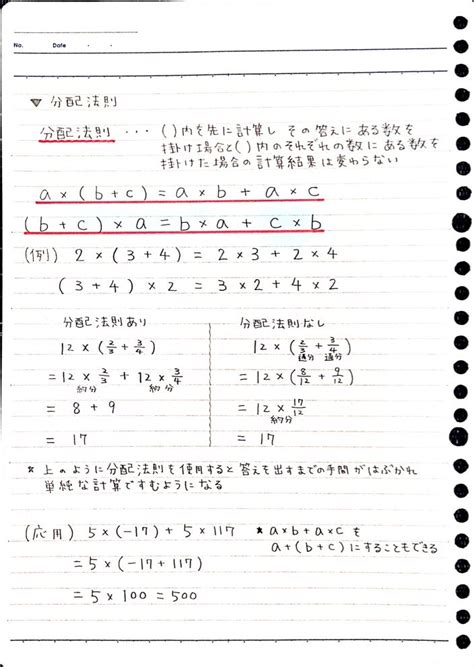 No.
Date ・ ・
▼ 分配法則
分配法則 ・・・ ( )内を先に計算し その答えに ある数を
掛け場合と( )内のそれぞれの数に ある数を
掛けた場合の計算結果は変わらない
a × (b + c) = a × b + a × c
(b + c) × a = b × a + c × b
(例) 2 × (3 + 4) = 2 × 3 + 2 × 4
(3 + 4) × 2 = 3 × 2 + 4 × 2
分配法則あり
12 × (2/3 + 3/4)
= 12 × 2/3 + 12 × 3/4
約分 約分
= 8 + 9
= 17
分配法則なし
12 × (2/3 + 3/4)
通分 通分
= 12 × (8/12 + 9/12)
= 12 × 17/12
約分
= 17
* 上のように分配法則を使用すると答えを出すまでの手間がはぶかれ
単純な計算ですむようになる
(応用) 5 × (-17) + 5 × 117
= 5 × (-17 + 117)
= 5 × 100 = 500
* a×b+a×c を
a+(b+c)にすることもできる